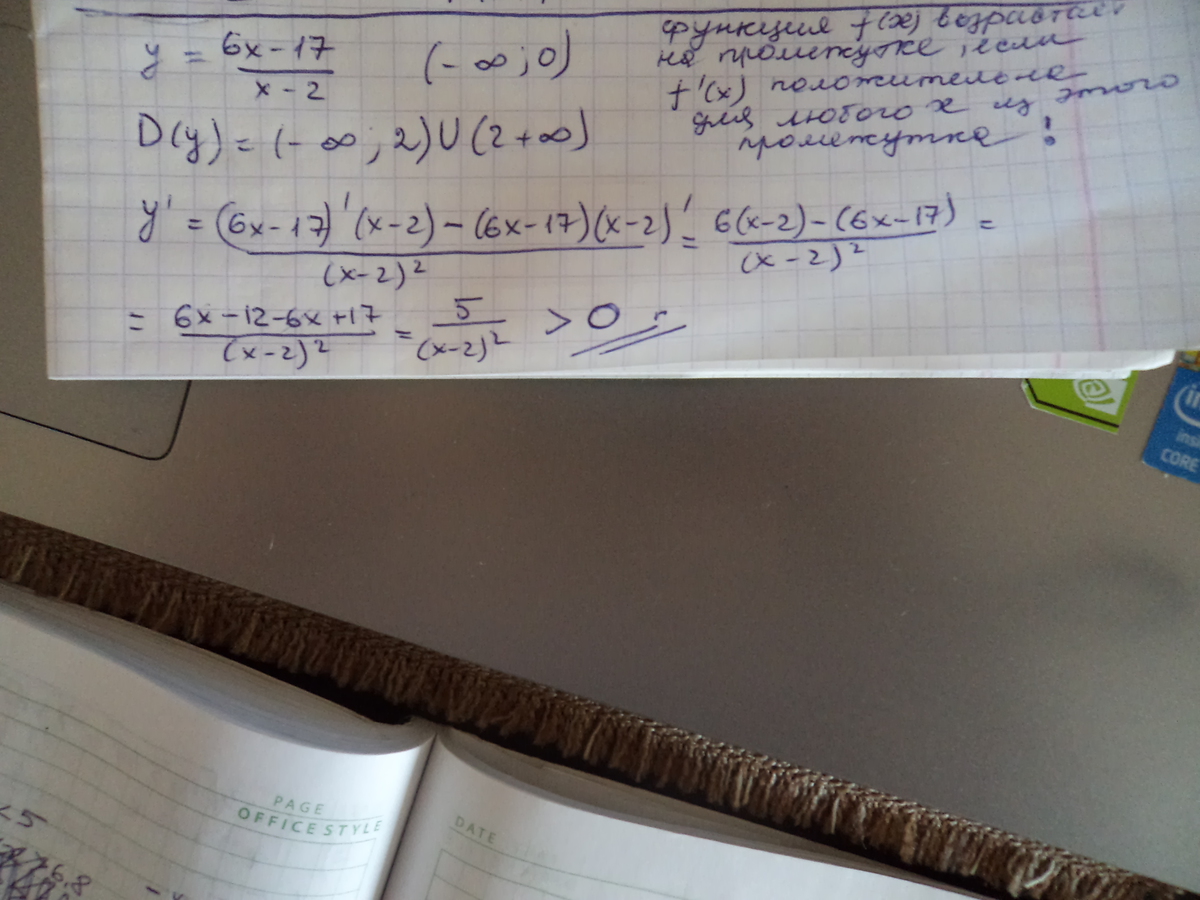 y = (6x-17)/(x-2) (-∞;0)
функция f(x) возрастает
на промежутке, если
f'(x) положительна
для любого x из этого
промежутка !
D(y) = (-∞; 2)∪(2+∞)
y' = ((6x-17)'(x-2)-(6x-17)(x-2)')/(x-2)² = (6(x-2)-(6x-17))/(x-2)² =
= (6x-12-6x+17)/(x-2)² = 5/(x-2)² > 0
CORE
PAGE
OFFICE STYLE
DATE
<5